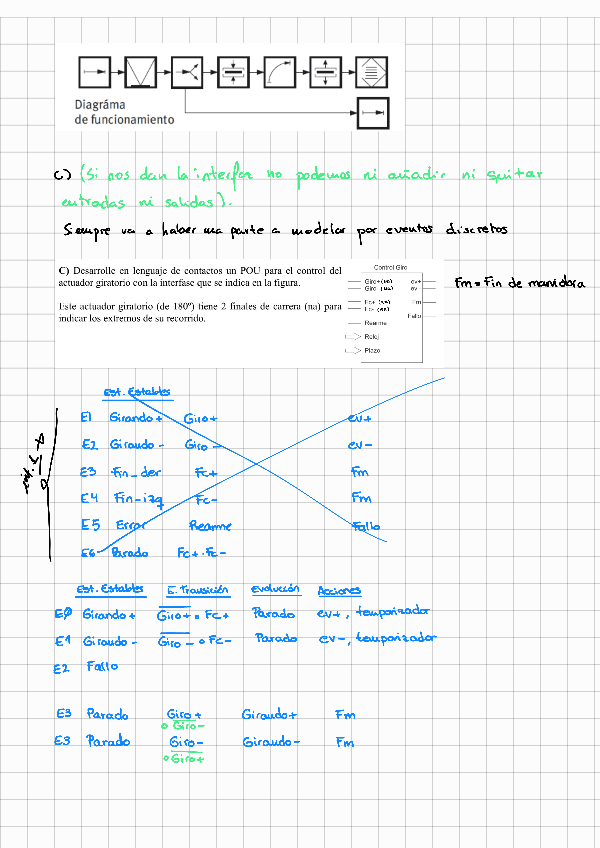 Diagráma
de funcionamiento
c) (Si nos dan la interfaz no podemos ni añadir ni quitar
entradas ni salidas).
Siempre va a haber una parte a modelar por eventos discretos
C) Desarrolle en lenguaje de contactos un POU para el control del
actuador giratorio con la interfase que se indica en la figura.
Este actuador giratorio (de 180º) tiene 2 finales de carrera (na) para
indicar los extremos de su recorrido.
Control Giro
Giro+ (NO) ev+
Giro- ev-
Fc+ Fm
Fc-
Fallo
Rearme
Reloj
Plazo
Fm = Fin de maniobra
Est. Estables
E1 Girando + Giro+ ev+
E2 Girando - Giro - ev-
E3 Fin_der Fc+ Fm
E4 Fin-izq Fc- Fm
E5 Error Rearme Fallo
E6 Parado Fc+ · Fc-
Est. Estables E. Transición Evolución Acciones
E0 Girando + Giro+ + Fc+ Parado ev+, temporizador
E1 Girando - Giro - + Fc- Parado ev-, temporizador
E2 Fallo
E3 Parado Giro+ Girando+ Fm
∘ Giro-
E3 Parado Giro- Girando- Fm
∘ Giro+